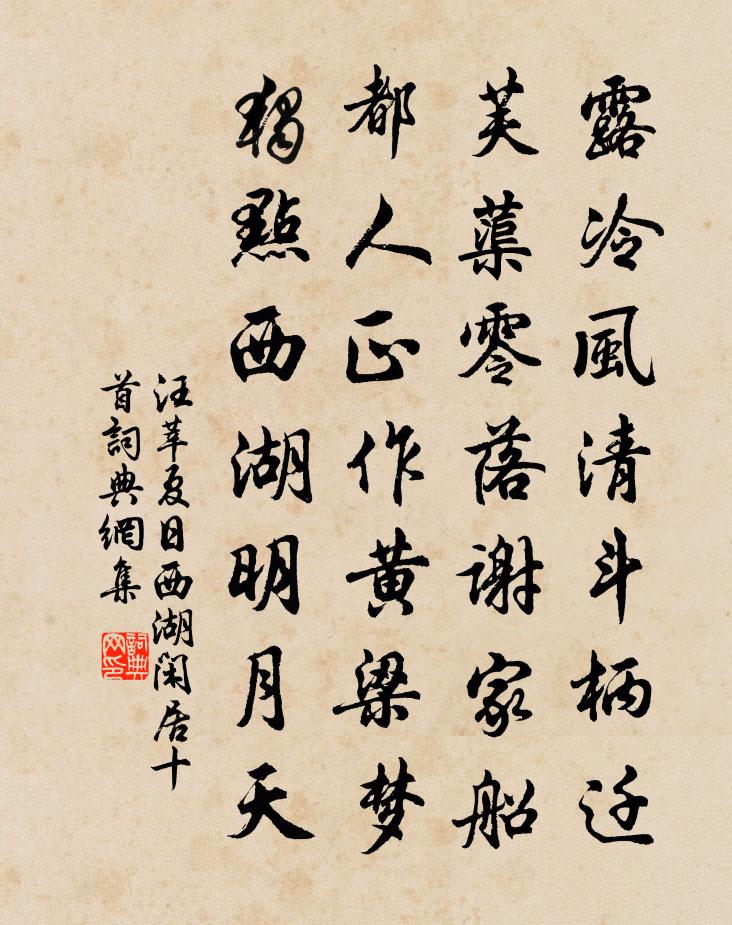 露冷風清斗柄迁
芙蕖零落謝家船
都人正作黄粱梦
獨點西湖明月天
汪莘夏日西湖閑居十
首詞典網集
詞典
网印